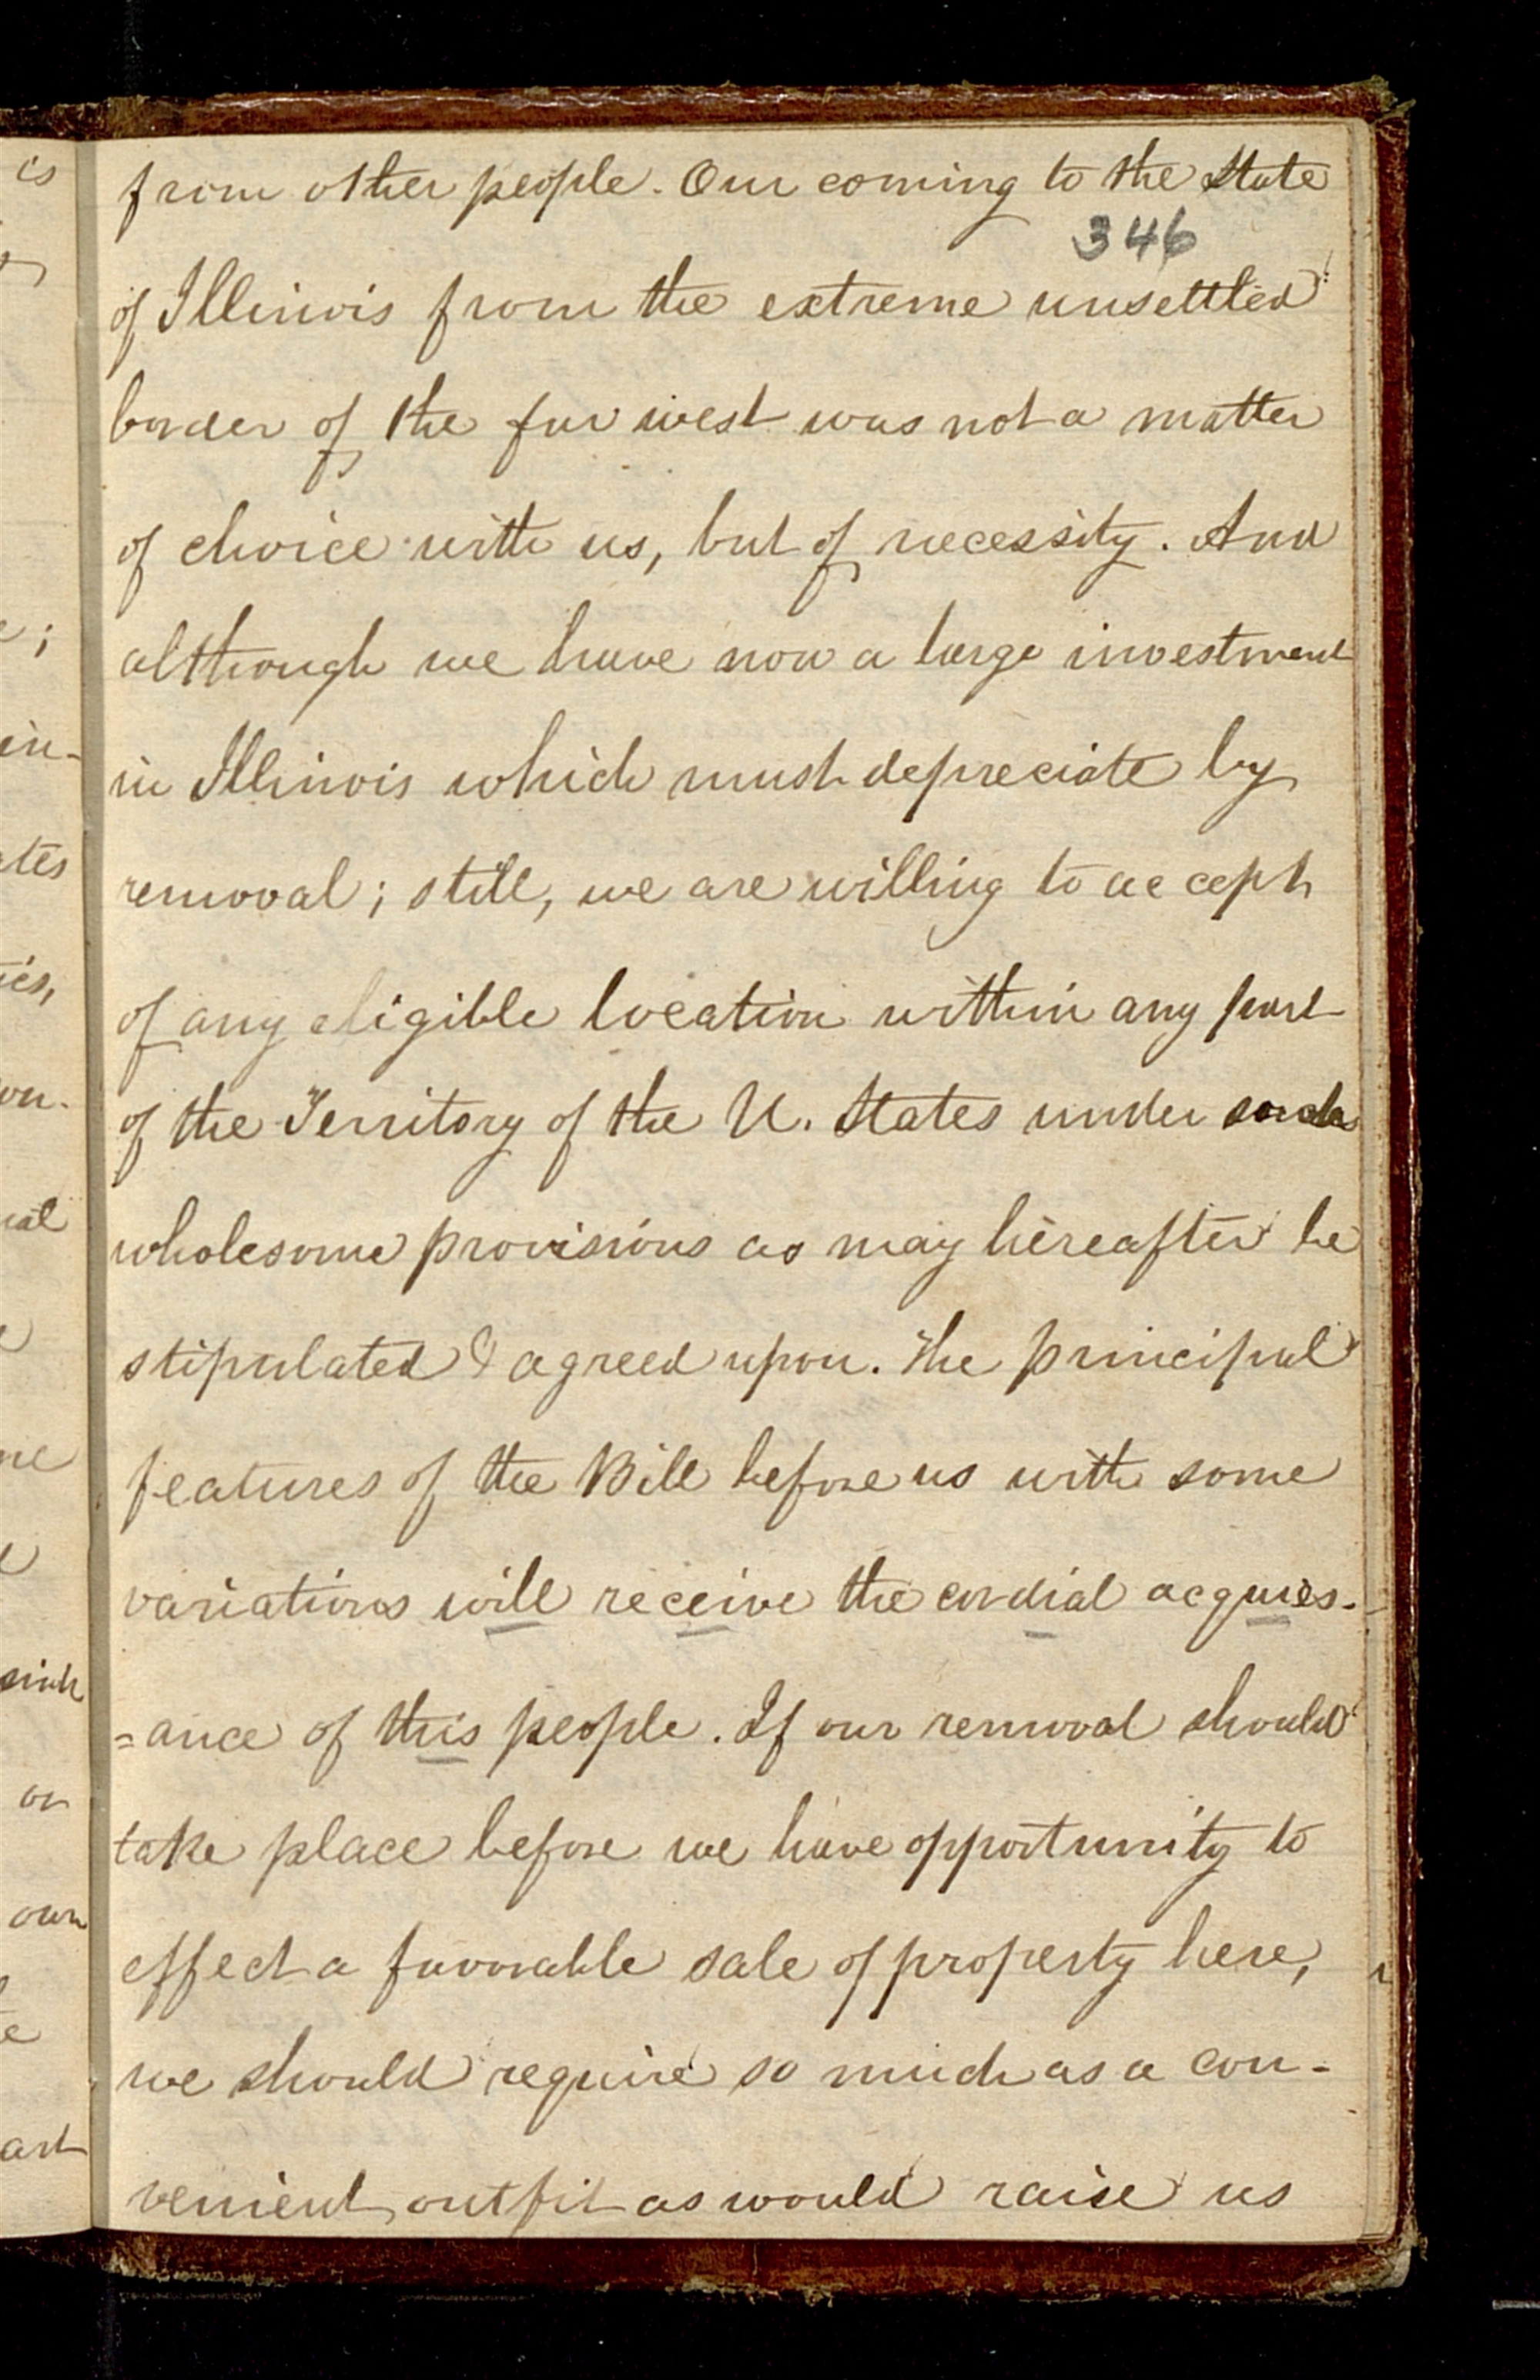 from other people. Our coming to the State
346
of Illinois from the extreme unsettled
border of the far west was not a matter
of choice with us, but of necessity. And
although we have now a large investment
in Illinois which must depreciate by
removal; still, we are willing to accept
of any eligible location within any part
of the Territory of the U. States under such
wholesome provisions as may hereafter be
stipulated & agreed upon. The principal
features of the Bill before us with some
variations will receive the cordial acquies-
=ance of this people. If our removal should
take place before we have opportunity to
effect a favorable sale of property here,
we should require so much as a con-
venient outfit as would raise us